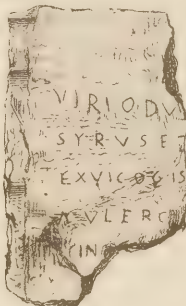 VIRIODV
SYRVSET
EXVICOGIS
AVLERC
CIN